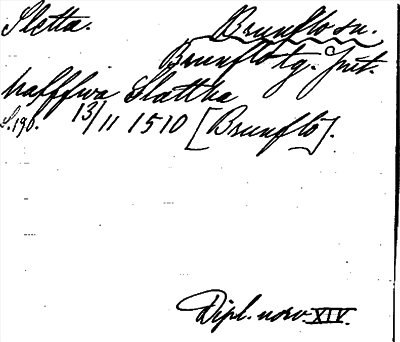 Sletta. Brunflo sn.
Brunflo tg. Jmt.
hafffwa Slattha
S. 190. 13/11 1510 [Brunflo].
Dipl. norv. XIV.